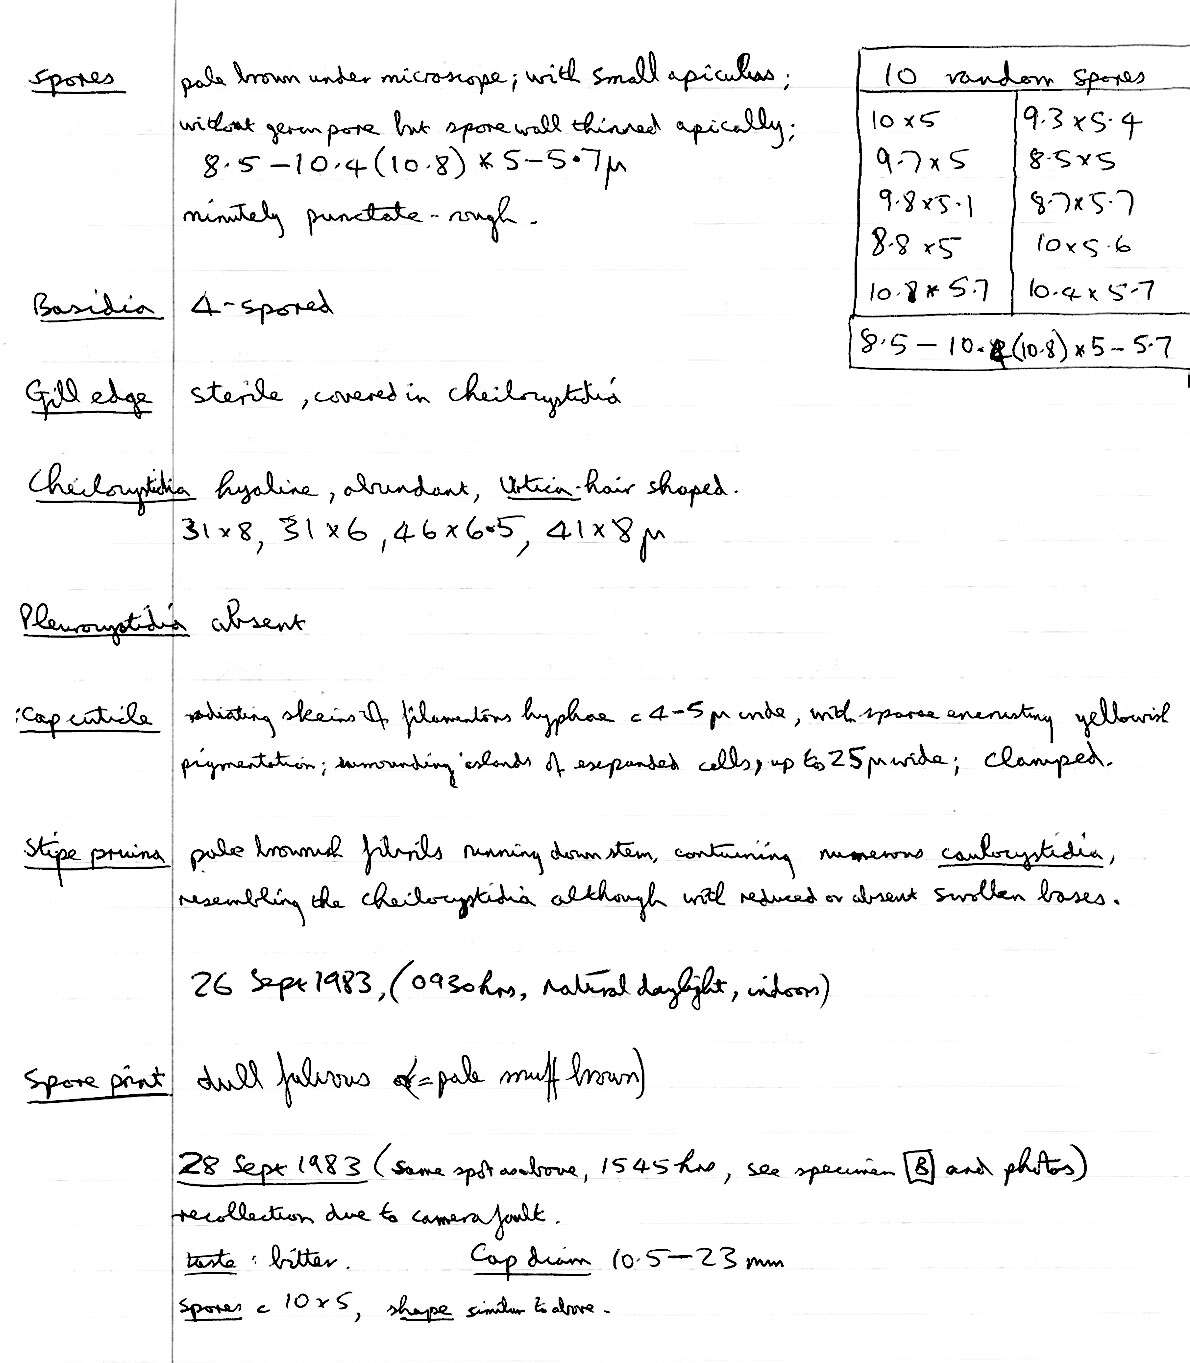 Spores pale brown under microscope; with small apiculus;
without germ pore but spore wall thinned apically;
8.5 – 10.4 (10.8) × 5 – 5.7 μ
minutely punctate-rough.
10 random spores
10 × 5 9.3 × 5.4
9.7 × 5 8.5 × 5
9.8 × 5.1 8.7 × 5.7
8.8 × 5 10 × 5.6
10.8 × 5.7 10.4 × 5.7
8.5 – 10.4 (10.8) × 5 – 5.7
Basidia 4-spored
Gill edge sterile, covered in cheilocystidia
Cheilocystidia hyaline, abundant, Urtica-hair shaped.
31 × 8, 31 × 6, 46 × 6.5, 41 × 8 μ
Pleurocystidia absent
Cap cuticle radiating skeins of filamentous hyphae c 4–5 μ wide, with sparse encrusting yellowish
pigmentation; surrounding islands of expanded cells, up to 25 μ wide; clamped.
Stipe pruina pale brownish fibrils running down stem, containing numerous caulocystidia,
resembling the cheilocystidia although with reduced or absent swollen bases.
26 Sept 1983, (0930 hrs, natural daylight, indoors)
Spore print dull fulvous (= pale snuff brown)
28 Sept 1983 (same spot as above, 1545 hrs, see specimen B and photos)
recollection due to camera fault.
taste: bitter. Cap diam 10.5 – 23 mm
Spores c 10 × 5, shape similar to above.